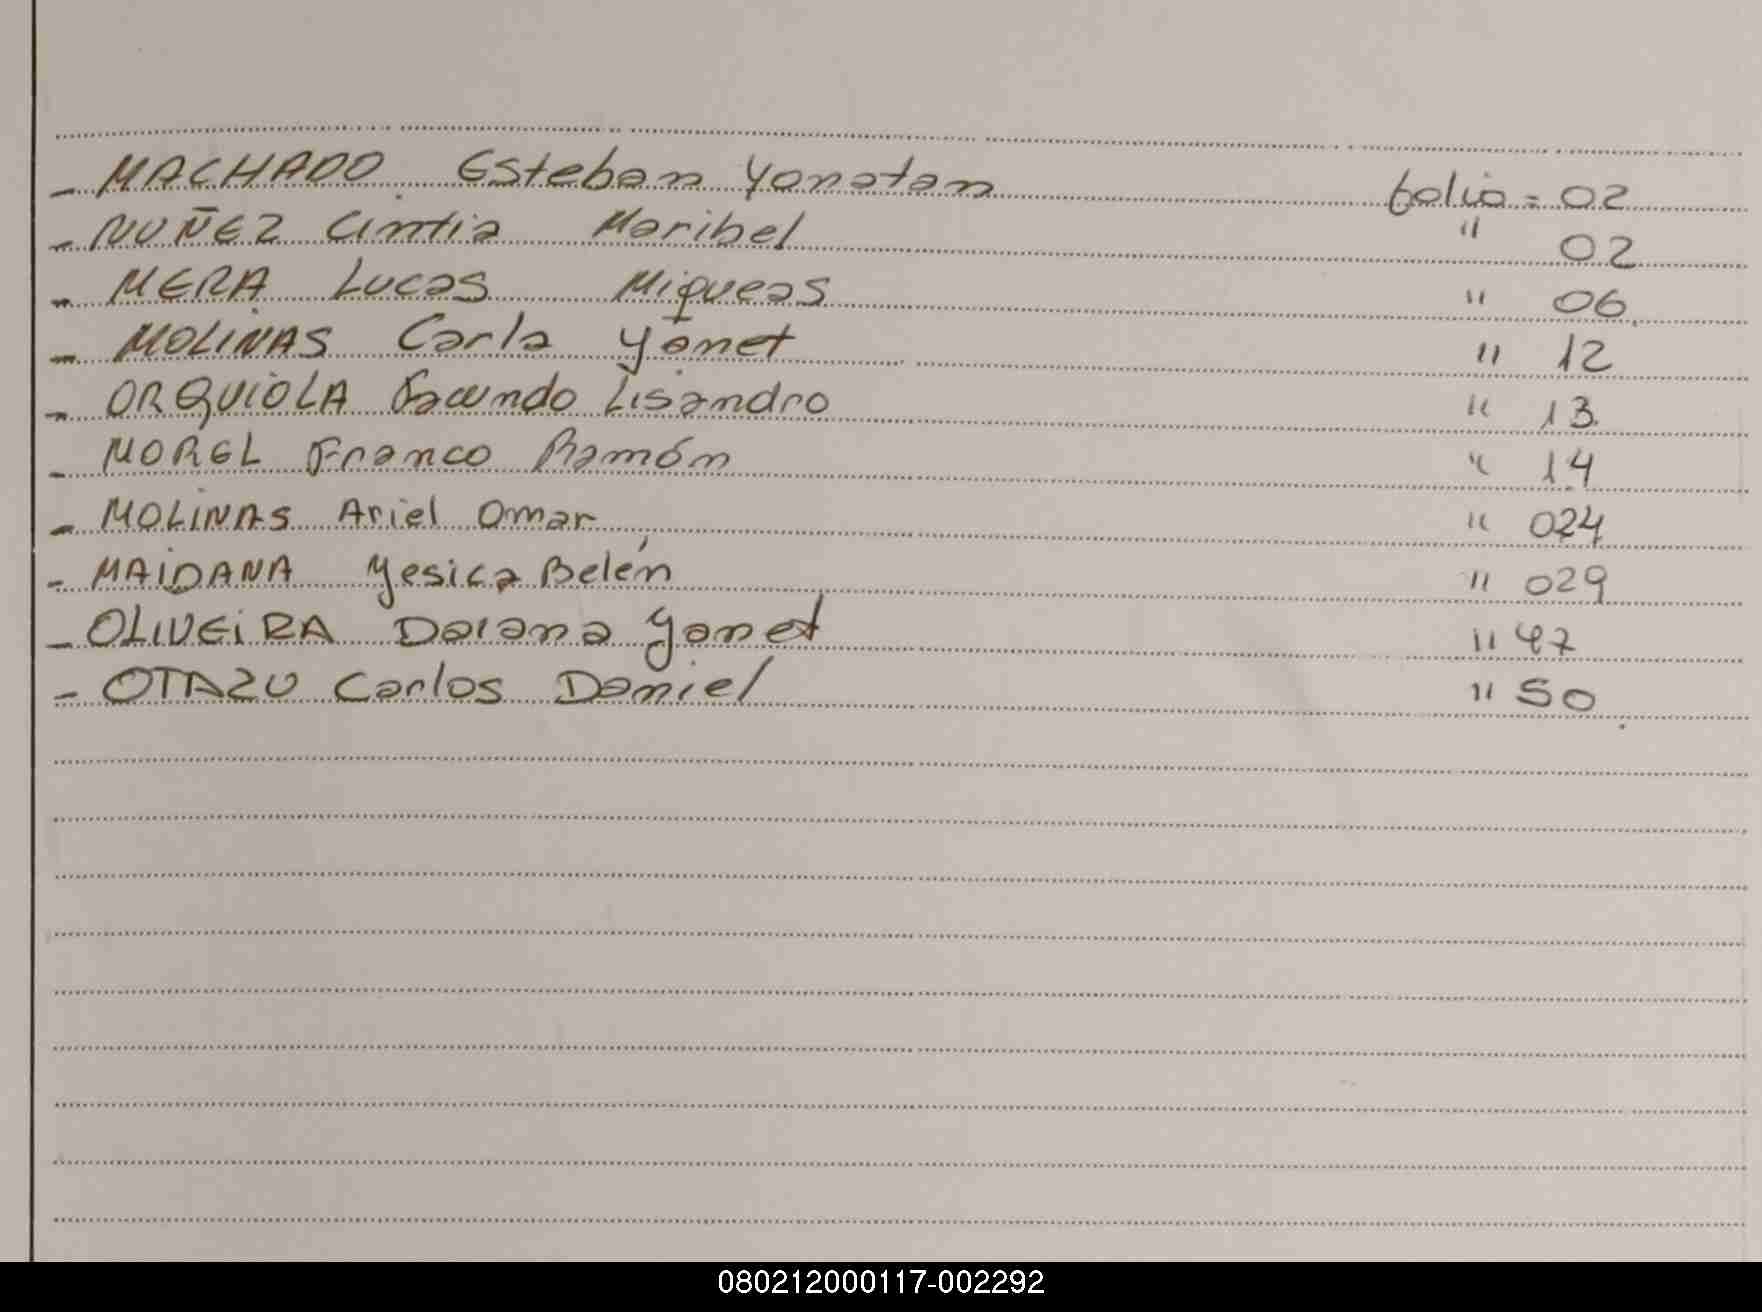 - MACHADO Esteban Yonatan folio = 02
- NUÑEZ Cintia Maribel " 02
- MERA Lucas Miqueas " 06
- MOLINAS Carla Yanet " 12
- ORQUIOLA Facundo Lisandro " 13
- MOREL Franco Ramón " 14
- MOLINAS Ariel Omar " 024
- MAIDANA Yesica Belén " 029
- OLIVEIRA Daiana Yanet " 47
- OTAZU Carlos Daniel " 50
080212000117-002292